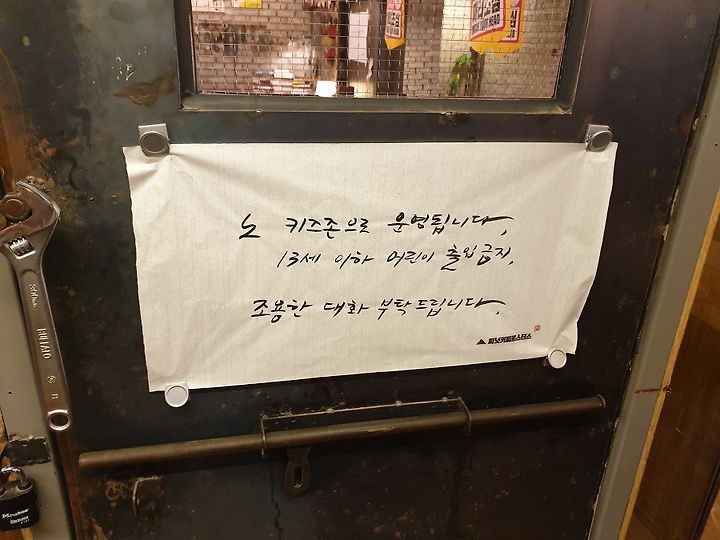 노 키즈존으로 운영됩니다.
13세 이하 어린이 출입금지.
조용한 대화 부탁드립니다.
BUFFALO
Master